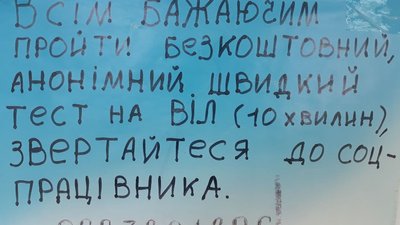 ВСІМ БАЖАЮЧИМ
ПРОЙТИ БЕЗКОШТОВНИЙ,
АНОНІМНИЙ ШВИДКИЙ
ТЕСТ НА ВІЛ (10 ХВИЛИН),
ЗВЕРТАЙТЕСЯ ДО СОЦ-
ПРАЦІВНИКА.